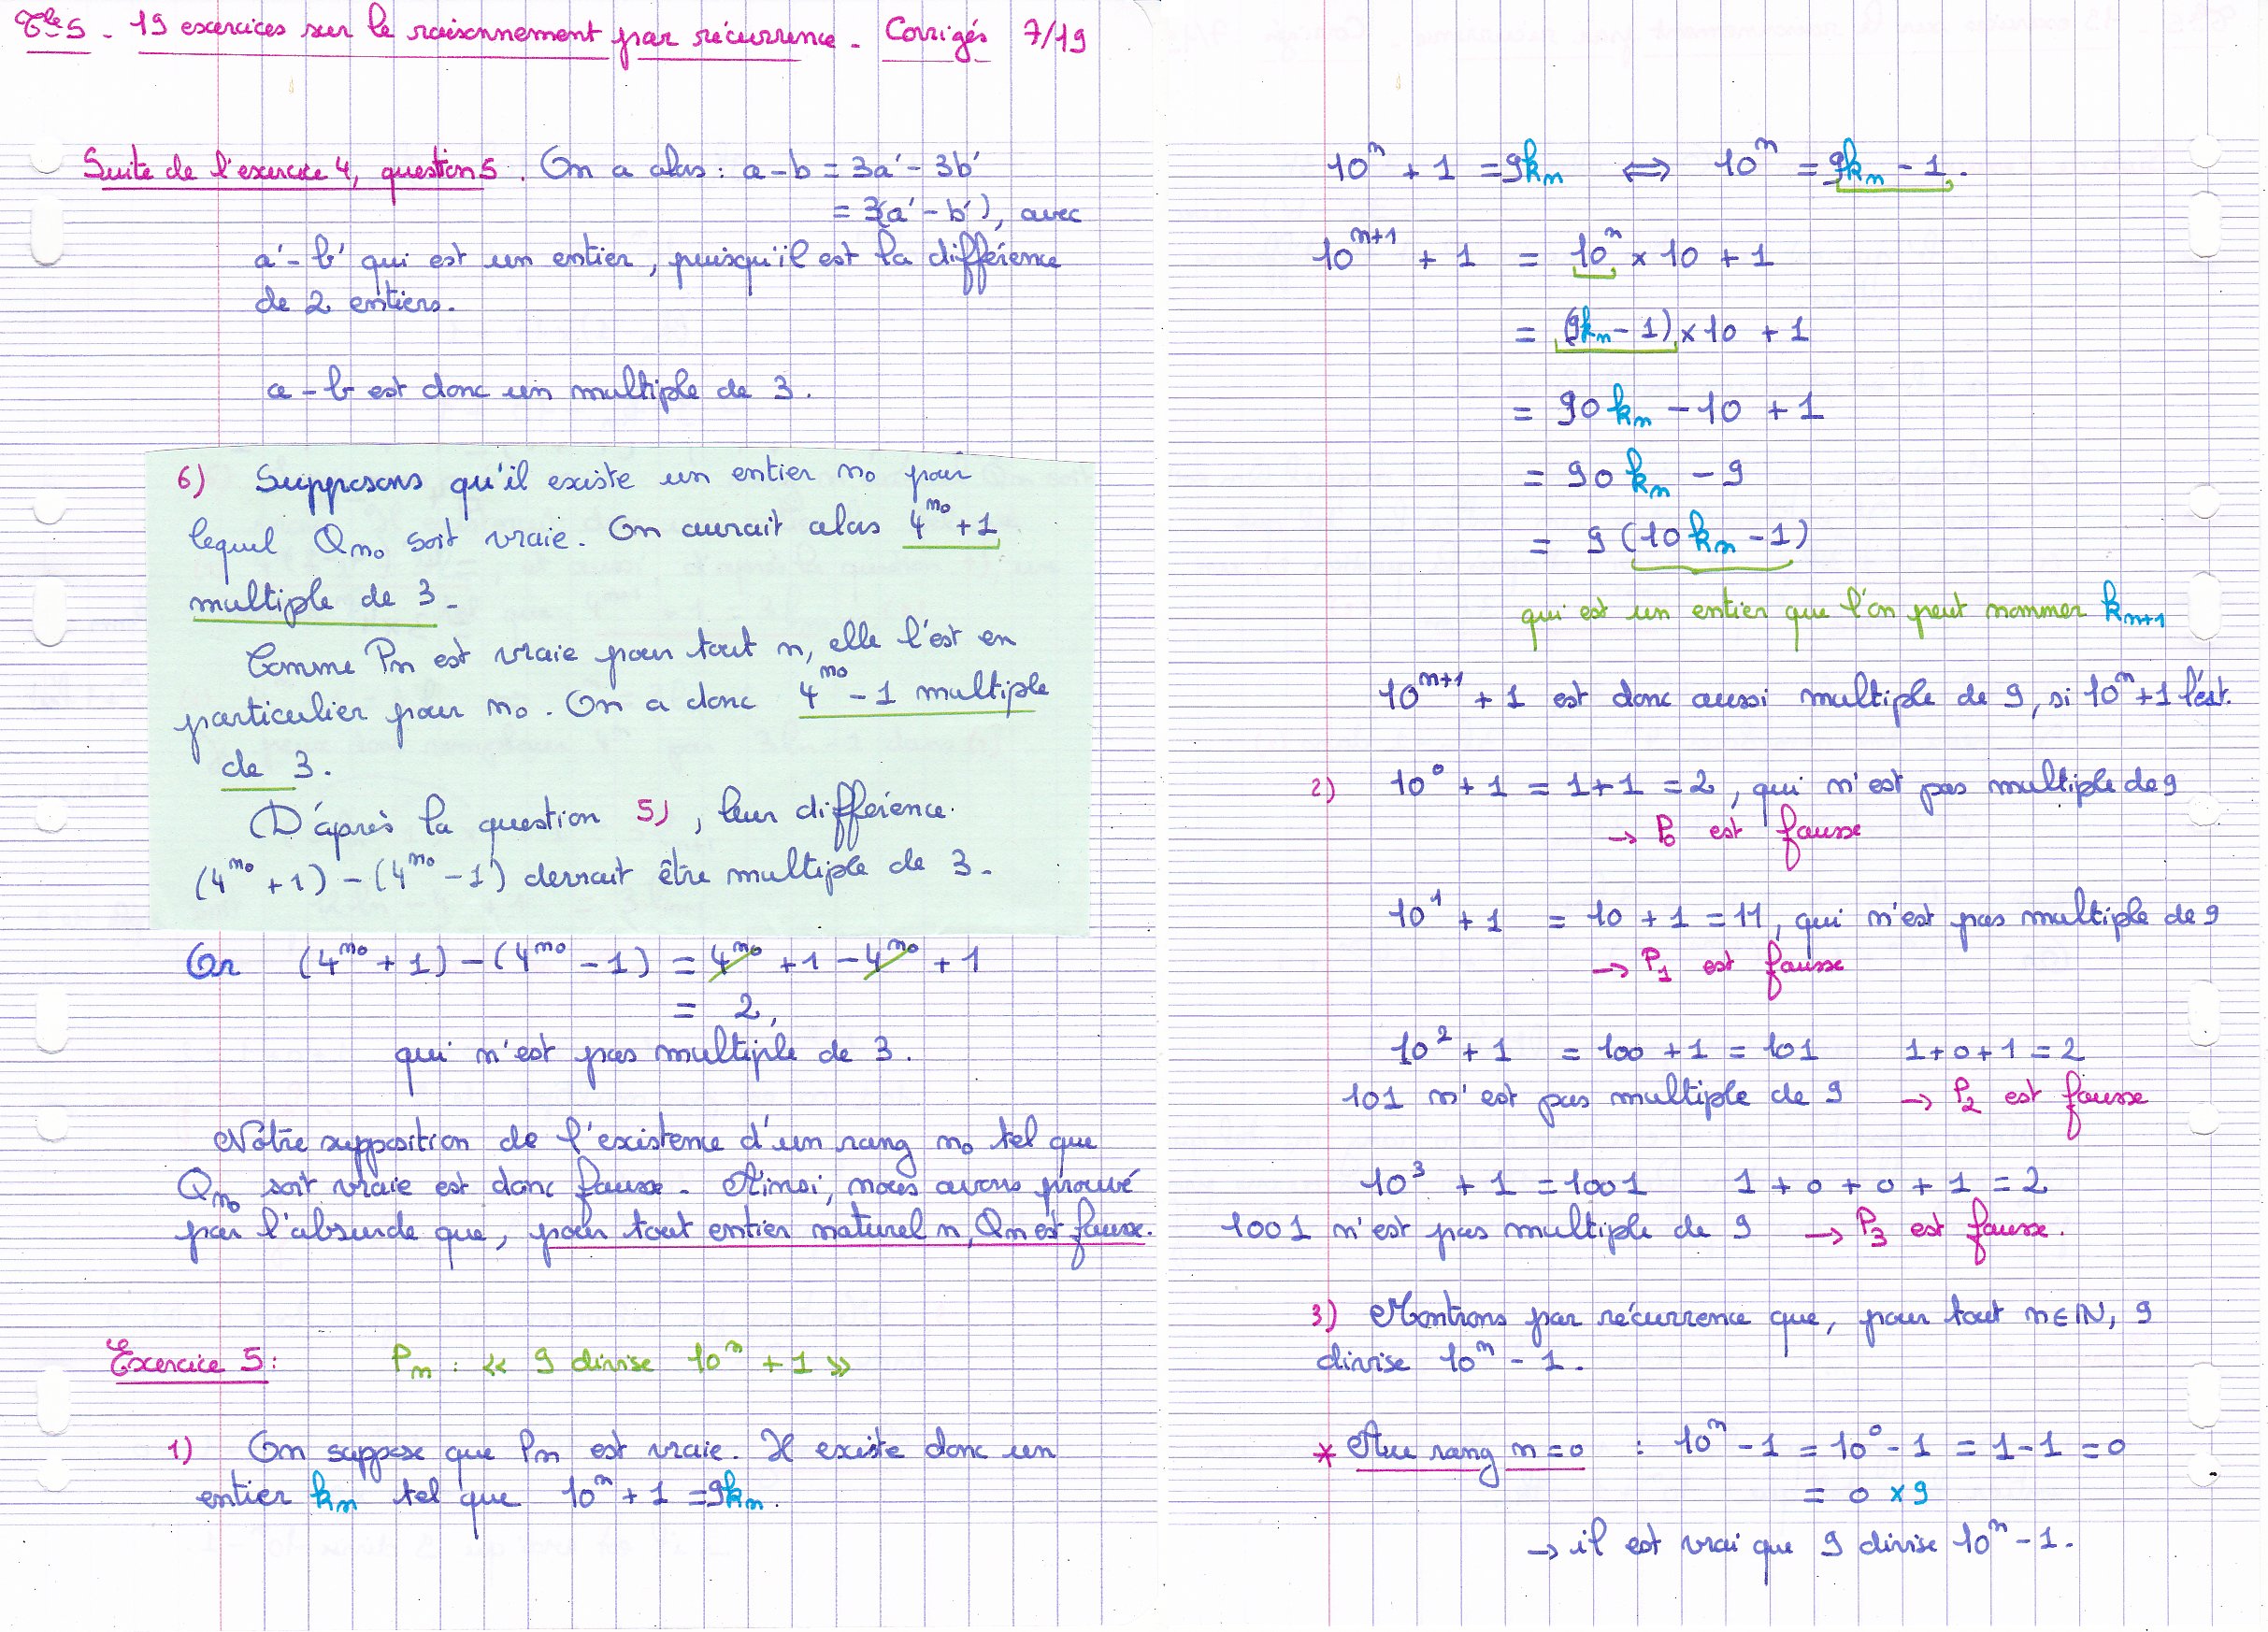 Tle S - 19 exercices sur le raisonnement par récurrence - Corrigés 7/19
Suite de l'exercice 4, question 5. On a alors : a - b = 3a' - 3b'
= 3(a' - b'), avec
a' - b' qui est un entier, puisqu'il est la différence
de 2 entiers.
a - b est donc un multiple de 3.
6) Supposons qu'il existe un entier n₀ pour
lequel Qn₀ soit vraie. On aurait alors 4^n₀ + 1
multiple de 3.
Comme Pn est vraie pour tout n, elle l'est en
particulier pour n₀. On a donc 4^n₀ - 1 multiple
de 3.
D'après la question 5), leur différence
(4^n₀ + 1) - (4^n₀ - 1) devrait être multiple de 3.
Or (4^n₀ + 1) - (4^n₀ - 1) = 4^n₀ + 1 - 4^n₀ + 1
= 2,
qui n'est pas multiple de 3.
Notre supposition de l'existence d'un rang n₀ tel que
Qn₀ soit vraie est donc fausse. Ainsi, nous avons prouvé
par l'absurde que, pour tout entier naturel n, Qn est fausse.
Exercice 5 : Pn : « 9 divise 10^n + 1 »
1) On suppose que Pn est vraie. Il existe donc un
entier kn tel que 10^n + 1 = 9kn.
10^n + 1 = 9kn ⟺ 10^n = 9kn - 1.
10^(n+1) + 1 = 10^n × 10 + 1
= (9kn - 1) × 10 + 1
= 90 kn - 10 + 1
= 90 kn - 9
= 9 (10 kn - 1)
qui est un entier que l'on peut nommer kn+1
10^(n+1) + 1 est donc aussi multiple de 9, si 10^n + 1 l'est.
2) 10⁰ + 1 = 1 + 1 = 2, qui n'est pas multiple de 9
→ P₀ est fausse
10¹ + 1 = 10 + 1 = 11, qui n'est pas multiple de 9
→ P₁ est fausse
10² + 1 = 100 + 1 = 101 1 + 0 + 1 = 2
101 n'est pas multiple de 9 → P₂ est fausse
10³ + 1 = 1001 1 + 0 + 0 + 1 = 2
1001 n'est pas multiple de 9 → P₃ est fausse.
3) Montrons par récurrence que, pour tout n ∈ ℕ, 9
divise 10^n - 1.
* Au rang n = 0 : 10^n - 1 = 10⁰ - 1 = 1 - 1 = 0
= 0 × 9
→ il est vrai que 9 divise 10^n - 1.